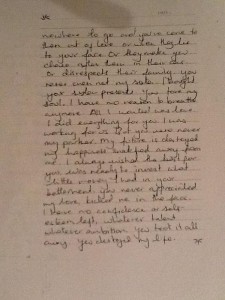 nowhere to go and you've come to
them out of love or when they lie
to your face Or they make you
chase after them in their car.
Or disrespects their family. You
never even met my sister. I bought
your sister presents. You tore my
soul. I have no reason to breathe
anymore. All I wanted was love.
I did everything for you I was
working for us. But you were never
my partner. My future is destroyed
my happiness snatched away from
me. I always wished the best for
you was ready to invest what
little money I had in your
betterment. You never appreciated
my love, kicked me in the face.
I have no confidence or self-
esteem left, whatever talent
whatever ambition you took it all
away. You destroyed my life.